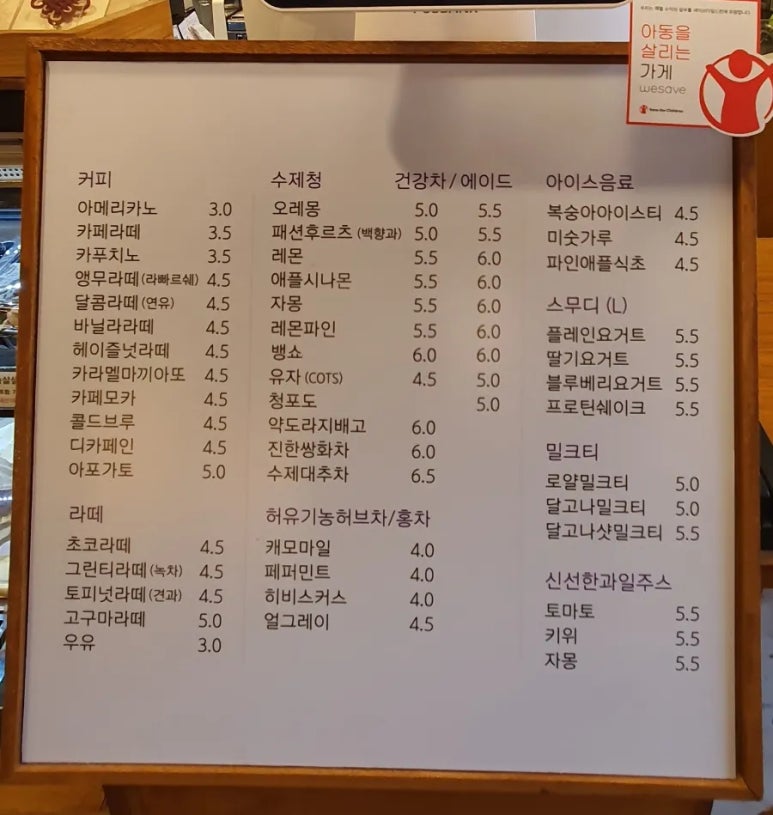 아동을
살리는
가게
wesave
Save the Children
커피
아메리카노 3.0
카페라떼 3.5
카푸치노 3.5
앵무라떼(라빠르쉐) 4.5
달콤라떼(연유) 4.5
바닐라라떼 4.5
헤이즐넛라떼 4.5
카라멜마끼아또 4.5
카페모카 4.5
콜드브루 4.5
디카페인 4.5
아포가토 5.0
라떼
초코라떼 4.5
그린티라떼(녹차) 4.5
토피넛라떼(견과) 4.5
고구마라떼 5.0
우유 3.0
수제청 건강차/에이드
오레몽 5.0 5.5
패션후르츠(백향과) 5.0 5.5
레몬 5.5 6.0
애플시나몬 5.5 6.0
자몽 5.5 6.0
레몬파인 5.5 6.0
뱅쇼 6.0 6.0
유자(COTS) 4.5 5.0
청포도 5.0
약도라지배고 6.0
진한쌍화차 6.0
수제대추차 6.5
허유기농허브차/홍차
캐모마일 4.0
페퍼민트 4.0
히비스커스 4.0
얼그레이 4.5
아이스음료
복숭아아이스티 4.5
미숫가루 4.5
파인애플식초 4.5
스무디 (L)
플레인요거트 5.5
딸기요거트 5.5
블루베리요거트 5.5
프로틴쉐이크 5.5
밀크티
로얄밀크티 5.0
달고나밀크티 5.0
달고나샷밀크티 5.5
신선한과일주스
토마토 5.5
키위 5.5
자몽 5.5